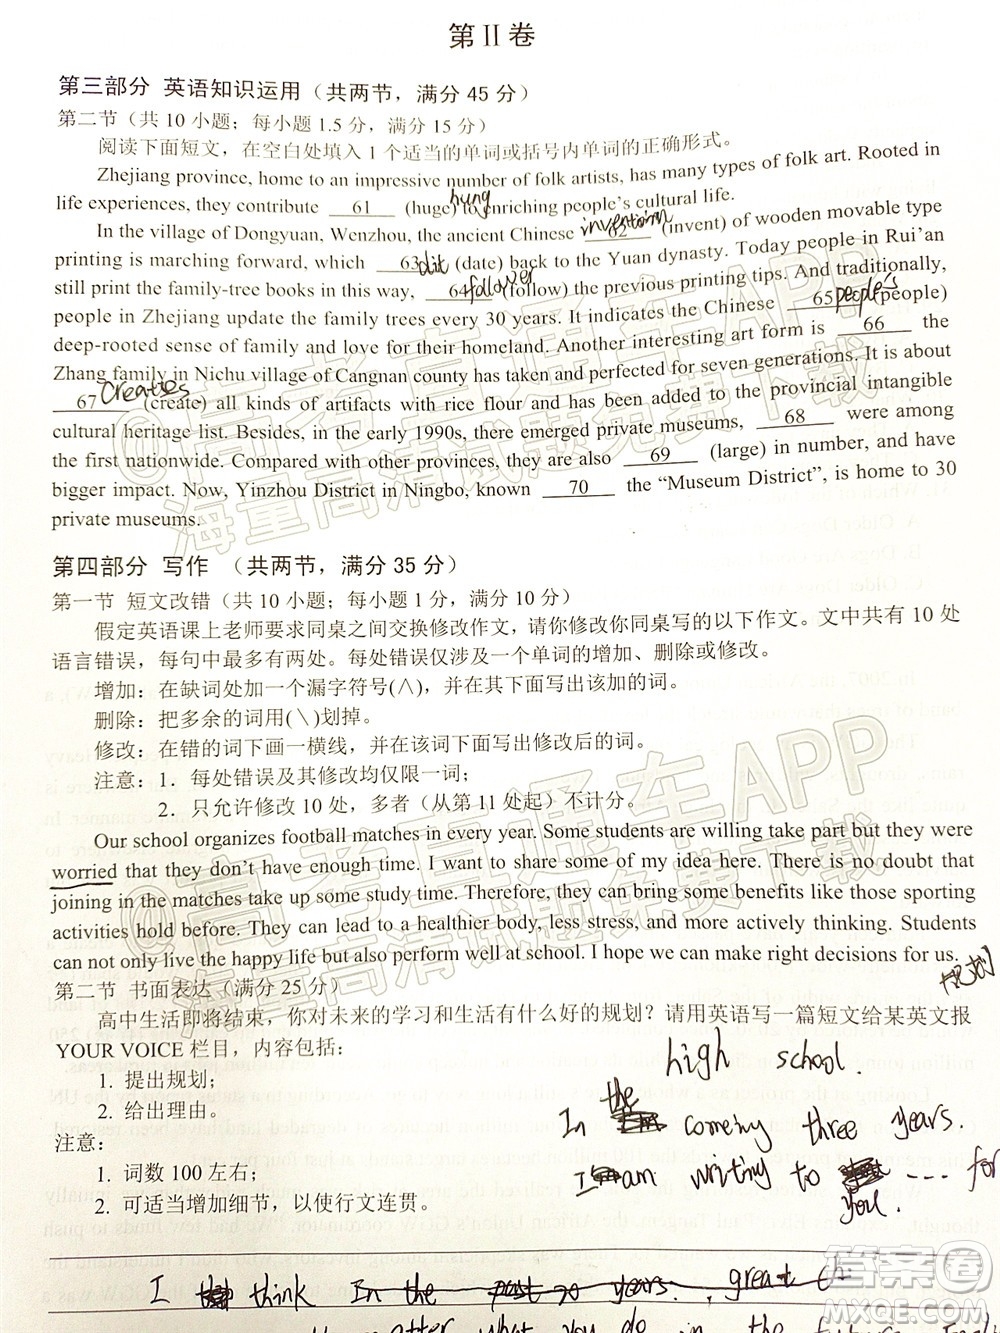 第 II 卷
第三部分 英语知识运用（共两节，满分 45 分）
第二节（共 10 小题；每小题 1.5 分，满分 15 分）
阅读下面短文，在空白处填入 1 个适当的单词或括号内单词的正确形式。
Zhejiang province, home to an impressive number of folk artists, has many types of folk art. Rooted in
life experiences, they contribute 61 (huge) to enriching people's cultural life.
hung
In the village of Dongyuan, Wenzhou, the ancient Chinese 62 (invent) of wooden movable type
printing is marching forward, which 63 (date) back to the Yuan dynasty. Today people in Rui'an
still print the family-tree books in this way, 64 (follow) the previous printing tips. And traditionally,
follower
people in Zhejiang update the family trees every 30 years. It indicates the Chinese 65 (people)
peoples
deep-rooted sense of family and love for their homeland. Another interesting art form is 66 the
Zhang family in Nichu village of Cangnan county has taken and perfected for seven generations. It is about
creaties
67 (create) all kinds of artifacts with rice flour and has been added to the provincial intangible
cultural heritage list. Besides, in the early 1990s, there emerged private museums, 68 were among
the first nationwide. Compared with other provinces, they are also 69 (large) in number, and have
bigger impact. Now, Yinzhou District in Ningbo, known 70 the “Museum District”, is home to 30
private museums.
第四部分 写作 （共两节，满分 35 分）
第一节 短文改错（共 10 小题；每小题 1 分，满分 10 分）
假定英语课上老师要求同桌之间交换修改作文，请你修改你同桌写的以下作文。文中共有 10 处
语言错误，每句中最多有两处。每处错误仅涉及一个单词的增加、删除或修改。
增加：在缺词处加一个漏字符号(∧)，并在其下面写出该加的词。
删除：把多余的词用(\)划掉。
修改：在错的词下画一横线，并在该词下面写出修改后的词。
注意：1. 每处错误及其修改均仅限一词；
2. 只允许修改 10 处，多者（从第 11 处起）不计分。
Our school organizes football matches in every year. Some students are willing take part but they were
worried that they don't have enough time. I want to share some of my idea here. There is no doubt that
joining in the matches take up some study time. Therefore, they can bring some benefits like those sporting
activities hold before. They can lead to a healthier body, less stress, and more actively thinking. Students
can not only live the happy life but also perform well at school. I hope we can make right decisions for us.
规划
第二节 书面表达（满分 25 分）
高中生活即将结束，你对未来的学习和生活有什么好的规划？请用英语写一篇短文给某英文报
YOUR VOICE 栏目，内容包括：
high school.
1. 提出规划；
2. 给出理由。
In the comeing three years.
注意：
1. 词数 100 左右；
I am writing to ---- for
you.
2. 可适当增加细节，以使行文连贯。
I think In the past years. , great
matter what you do in the future
@高考直通车APP
海量高清试题免费下载
@高考直通车APP
海量高清试题免费下载
答案圈
MXQE.COM